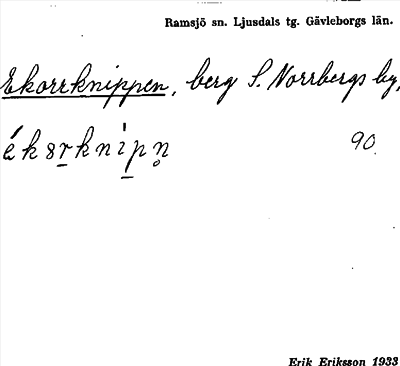 Ramsjö sn. Ljusdals tg. Gävleborgs län.
Ekorrknippen, berg S. Norrbergs by,
ék8r̲knìpn̥
90.
Erik Eriksson 1933